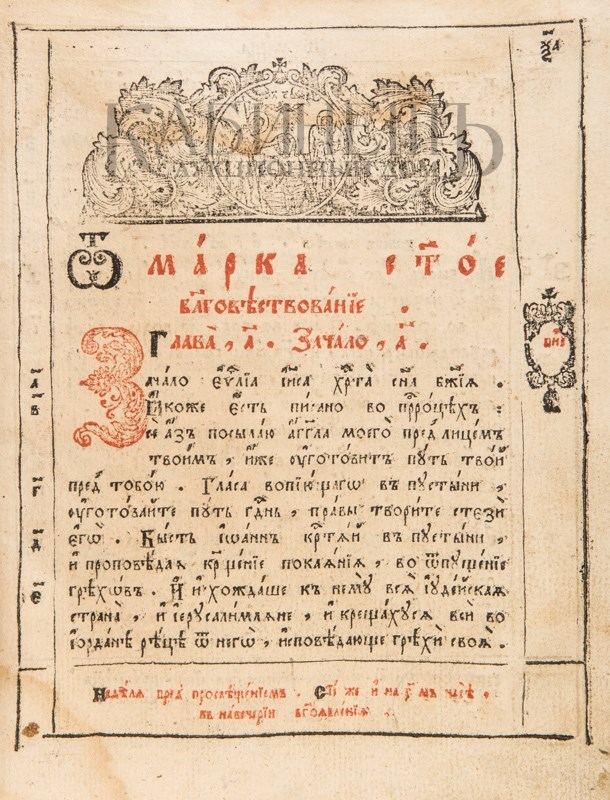 ха
КАБИНЕТЪ
АУКЦИОННЫЙ ДОМ
Ѿ МА́РКА СТ҃О́Е
бл҃говѣствова́нїе .
Глава̀, а҃. Зача́ло, а҃.
Зача́ло еѵ҃лїа і҆и҃са хр҃та̀ сн҃а бж҃їѧ .
Ꙗ҆́коже є҆́сть пи́сано во прⷪ҇ро́цѣхъ :
сѐ а҆́зъ посыла́ю а҆́гг҃ла моего̀ пред̾ лице́мъ
твои́мъ , и҆́же ᲂу҆гото́витъ пꙋ́ть тво́й
а҃
в҃
пред̾ тобо́ю . Гла́съ вопїю́щагѡ въ пꙋсты́ни ,
г҃
ᲂу҆гото́вайте пꙋ́ть гдⷭ҇нь , пра́вы твори́те стезѝ
є҆гѡ̀ . Бы́сть і҆ѡа́ннъ крⷭ҇тѧ́й въ пꙋсты́ни ,
д҃
и҆ проповѣ́даѧ крⷭ҇ще́нїе покаѧ́нїѧ , во ѿпꙋще́нїе
грѣхѡ́въ . И҆ и҆схожда́ше къ немꙋ̀ всѧ̀ і҆ꙋде́йскаѧ
е҃
страна̀ , и҆ і҆ерⷭ҇али́млѧне , и҆ креща́хꙋсѧ всѝ во
і҆ѻрда́нѣ рѣцѣ̀ ѿ негѡ̀ , и҆сповѣ́дающе грѣхѝ своѧ̀ .
Недѣ́лѧ пред̾ просвѣще́нїемъ . Сїѐ же и҆ на г҃ мъ часѣ̀ .
въ наве́черїи бг҃оѧвле́нїѧ .